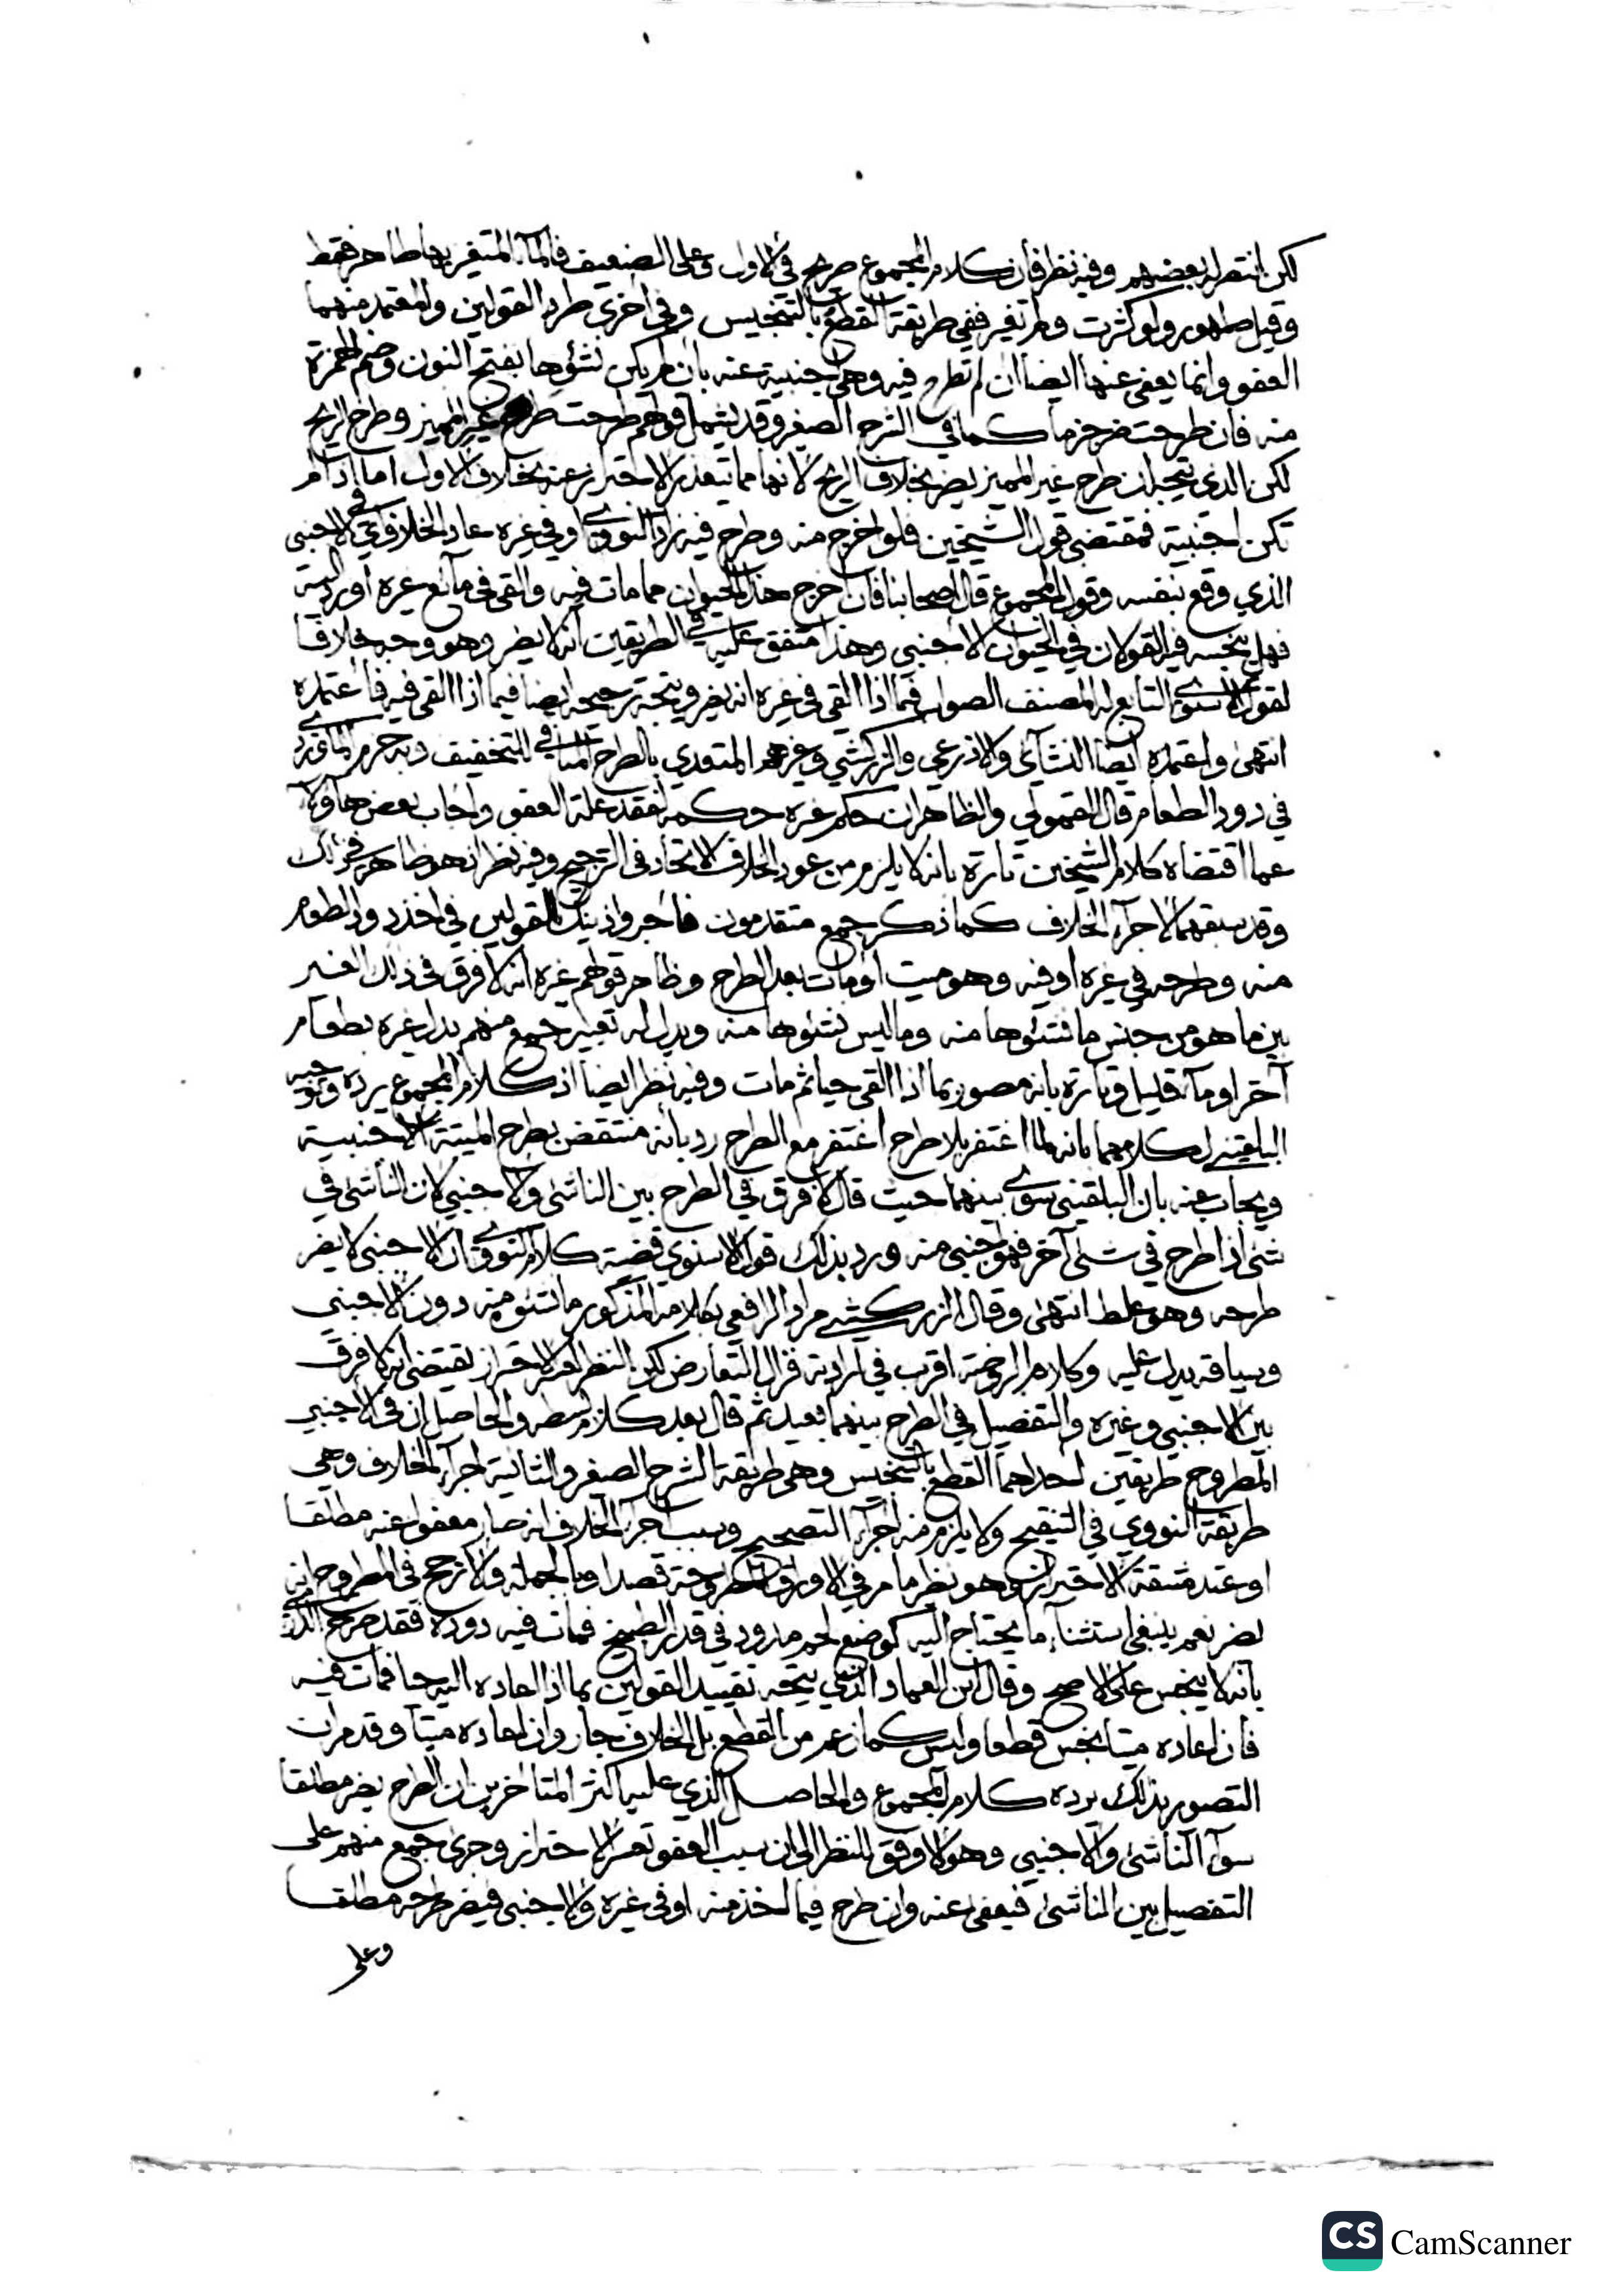 لكن انتصر له بعضهم وفيه نظر فان كلام المجموع صريح في الاول وعلى الضعيف فالمآء المتغير بها طاهر فقط
وقيل طهور ولو كثرت ولم تغير ففي طريقة القطع بالتنجيس وفي اخرى طرد القولين والمعتمد منهما
العفو وانما يعفى عنها ايضا ان لم تطرح فيه وهي اجنبية عنه بان لم يكن نشؤها بفتح النون وضم الهمزة
منه فان طرحت ضر جزما كما في الشرح الصغير وقد يشمل قولهم طرحت طرح غير المميز وطرح الريح
لكن الذي يتجه ان طرح غير المميز يضر بخلاف الريح لانها مما يتعذر الاحتراز عنه بخلاف الاول اما اذا لم
تكن اجنبية فمقتضى قول الشيخين فلو اخرج منه وطرح فيه زاد النووي او في غيره عاد الخلاف في الاجنبي
الذي وقع بنفسه وقول المجموع قال اصحابنا فان اخرج هذا الحيوان مما مات فيه والقي في مائع غيره او رد اليه
فهل ينجسه فيه القولان في الحيوان الاجنبي وهذا متفق عليه في الطريقين انه لا يضر وهو وجيه خلافا
لقول الاسنوي التابع له المصنف الصواب فيما اذا القي في غيره انه يضر ويتجه ترجيحه ايضا فيما اذا القي فيه فاعتمده
انتهى واعتمده ايضا النشآئي والاذرعي والزركشي وغيرهم المتعدي بالطرح المنافي للتخفيف وبه جزم الماوردي
في دود الطعام قال القمولي والظاهر ان حكم غيره حكمه لفقد علة العفو واجاب بعض هاولآء
عما اقتضاه كلام الشيخين تارة بانه لا يلزم من عود الخلاف الاتحاد في الترجيح وفيه نظر انه هو ظاهر في ذلك
وقد سبقهما لاجرآء الخلاف كما ذكر جمع متقدمون فاجروا ذينك القولين في اخذ دود الطعام
منه وطرحه في غيره او فيه وهو ميت او مات بعد الطرح وظاهر قولهم غيره انه لا فرق في ذلك الغير
بين ما هو من جنس ما نشئوها منه وما ليس نشئوها منه ويدل له تعبير جمع منهم بدل غيره بطعام
آخر او مآء قليل وتارة بانه مصور بما اذا القي حيا ثم مات وفيه نظر ايضا اذ كلام المجموع يرده وتوجيه
البلقيني لكلامهما بانه لما اغتفر بلا طرح اغتفر مع الطرح رد بانه منتقض بطرح الميتة الاجنبية
ويجاب عنه بان البلقيني سوى بينهما حيث قال لا فرق في الطرح بين الناشئ والاجنبي لان الناشئ في
شئ اذا طرح في شئ آخر فهو اجنبي منه ورد بذلك قول الاسنوي قضية كلام النووي ان الاجنبي لا يضر
طرحه وهو غلط انتهى وقال الزركشي مراد الرافعي بكلامه المذكور ما نشئوه منه دون الاجنبي
وسياقه يدل عليه وكلام الروضة اقرب في ارادته فزال التعارض لكن النظر لعسر الاحتراز يقتضي انه لا فرق
بين الاجنبي وغيره والتفصيل في الطرح بينهما بعيد ثم قال بعد كلام بسطه والحاصل ان في الاجنبي
المطروح طريقين احداهما القطع بالتنجيس وهي طريقة الشرح الصغير والثانية اجرآء الخلاف وهي
طريقة النووي في التنقيح ولا يلزم منه اجرآء التصحيح وسبب اجرآء الخلاف انه صار معفوا عنه مطلقا
او عند مشقة الاحتراز وهو نظير ما مر في الاوراق المطروحة قصدا وبالجملة والارجح في المطروح انه
يضر نعم ينبغي استثناء ما يحتاج اليه كوضع لحم مدود في قدر الطبيخ فمات فيه دوده فقد صرح الدارمي
بانه لا ينجس على الاصح وقال ابن العماد الذي يتجه تقييد القولين بما اذا اعاده اليه حيا فمات فيه
فان اعاده ميتا نجس قطعا وليس كما زعم من القطع بل الخلاف جار وان اعاده ميتا وقد مر ان
التصوير بذلك يرده كلام المجموع والحاصل الذي عليه اكثر المتاخرين ان الطرح يضر مطلقا
سوآء الناشئ والاجنبي وهو الاوفق بالنظر الى ان سبب العفو تعسر الاحتراز وجرى جمع منهم على
التفصيل بين الناشئ فيعفى عنه وان طرح فيما اخذ منه او في غيره والاجنبي فيضر طرحه مطلقا
وعلى
CS CamScanner